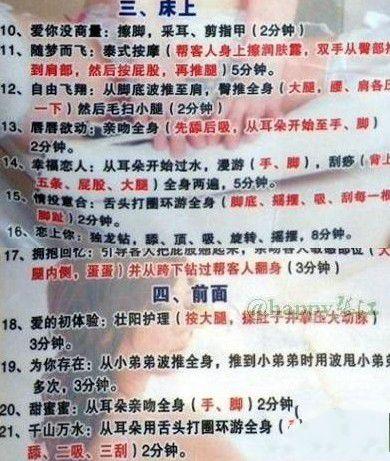 三、床上
10、爱你没商量：擦脚，采耳、剪指甲（2分钟）
11、随梦而飞：泰式按摩（帮客人身上擦润肤露，双手从臀部
到肩部，然后按屁股，再推腿）5分钟。
12、自由飞翔：从脚底波推至肩，臀推全身（大腿，腰、肩各压
一下）然后毛扫小腿（2分钟）
13、唇唇欲动：亲吻全身（先舔后吸，从耳朵开始至手、脚）
2分钟。
14、幸福恋人：从耳朵开始过水，漫游（手、脚），刮痧（背上
五条、屁股、大腿）全身两遍，5分钟。
15、情投意合：舌头打圈环游全身（脚底、摇摆、吸、刮每一根
脚趾）2分钟。
16、恋上你：独龙钻，舔、顶、吸、旋转、摇摆，8分钟。
17、拥抱回忆：引导客人把屁股翘起来，亲吻客人敏感部位（大
腿内侧，蛋蛋）并从跨下钻过帮客人翻身（3分钟）
四、前面
@happy张江
18、爱的初体验：壮阳护理（按大腿，揉肚子并掌压大动脉）
3分钟。
19、为你存在：从小弟弟波推全身，推到小弟弟时用波甩小弟
多次，3分钟。
20、甜蜜蜜：从耳朵亲吻全身（手、脚）2分钟
21、千山万水：从耳朵用舌头打圈环游全身（
舔、二吸、三刮）2分钟。